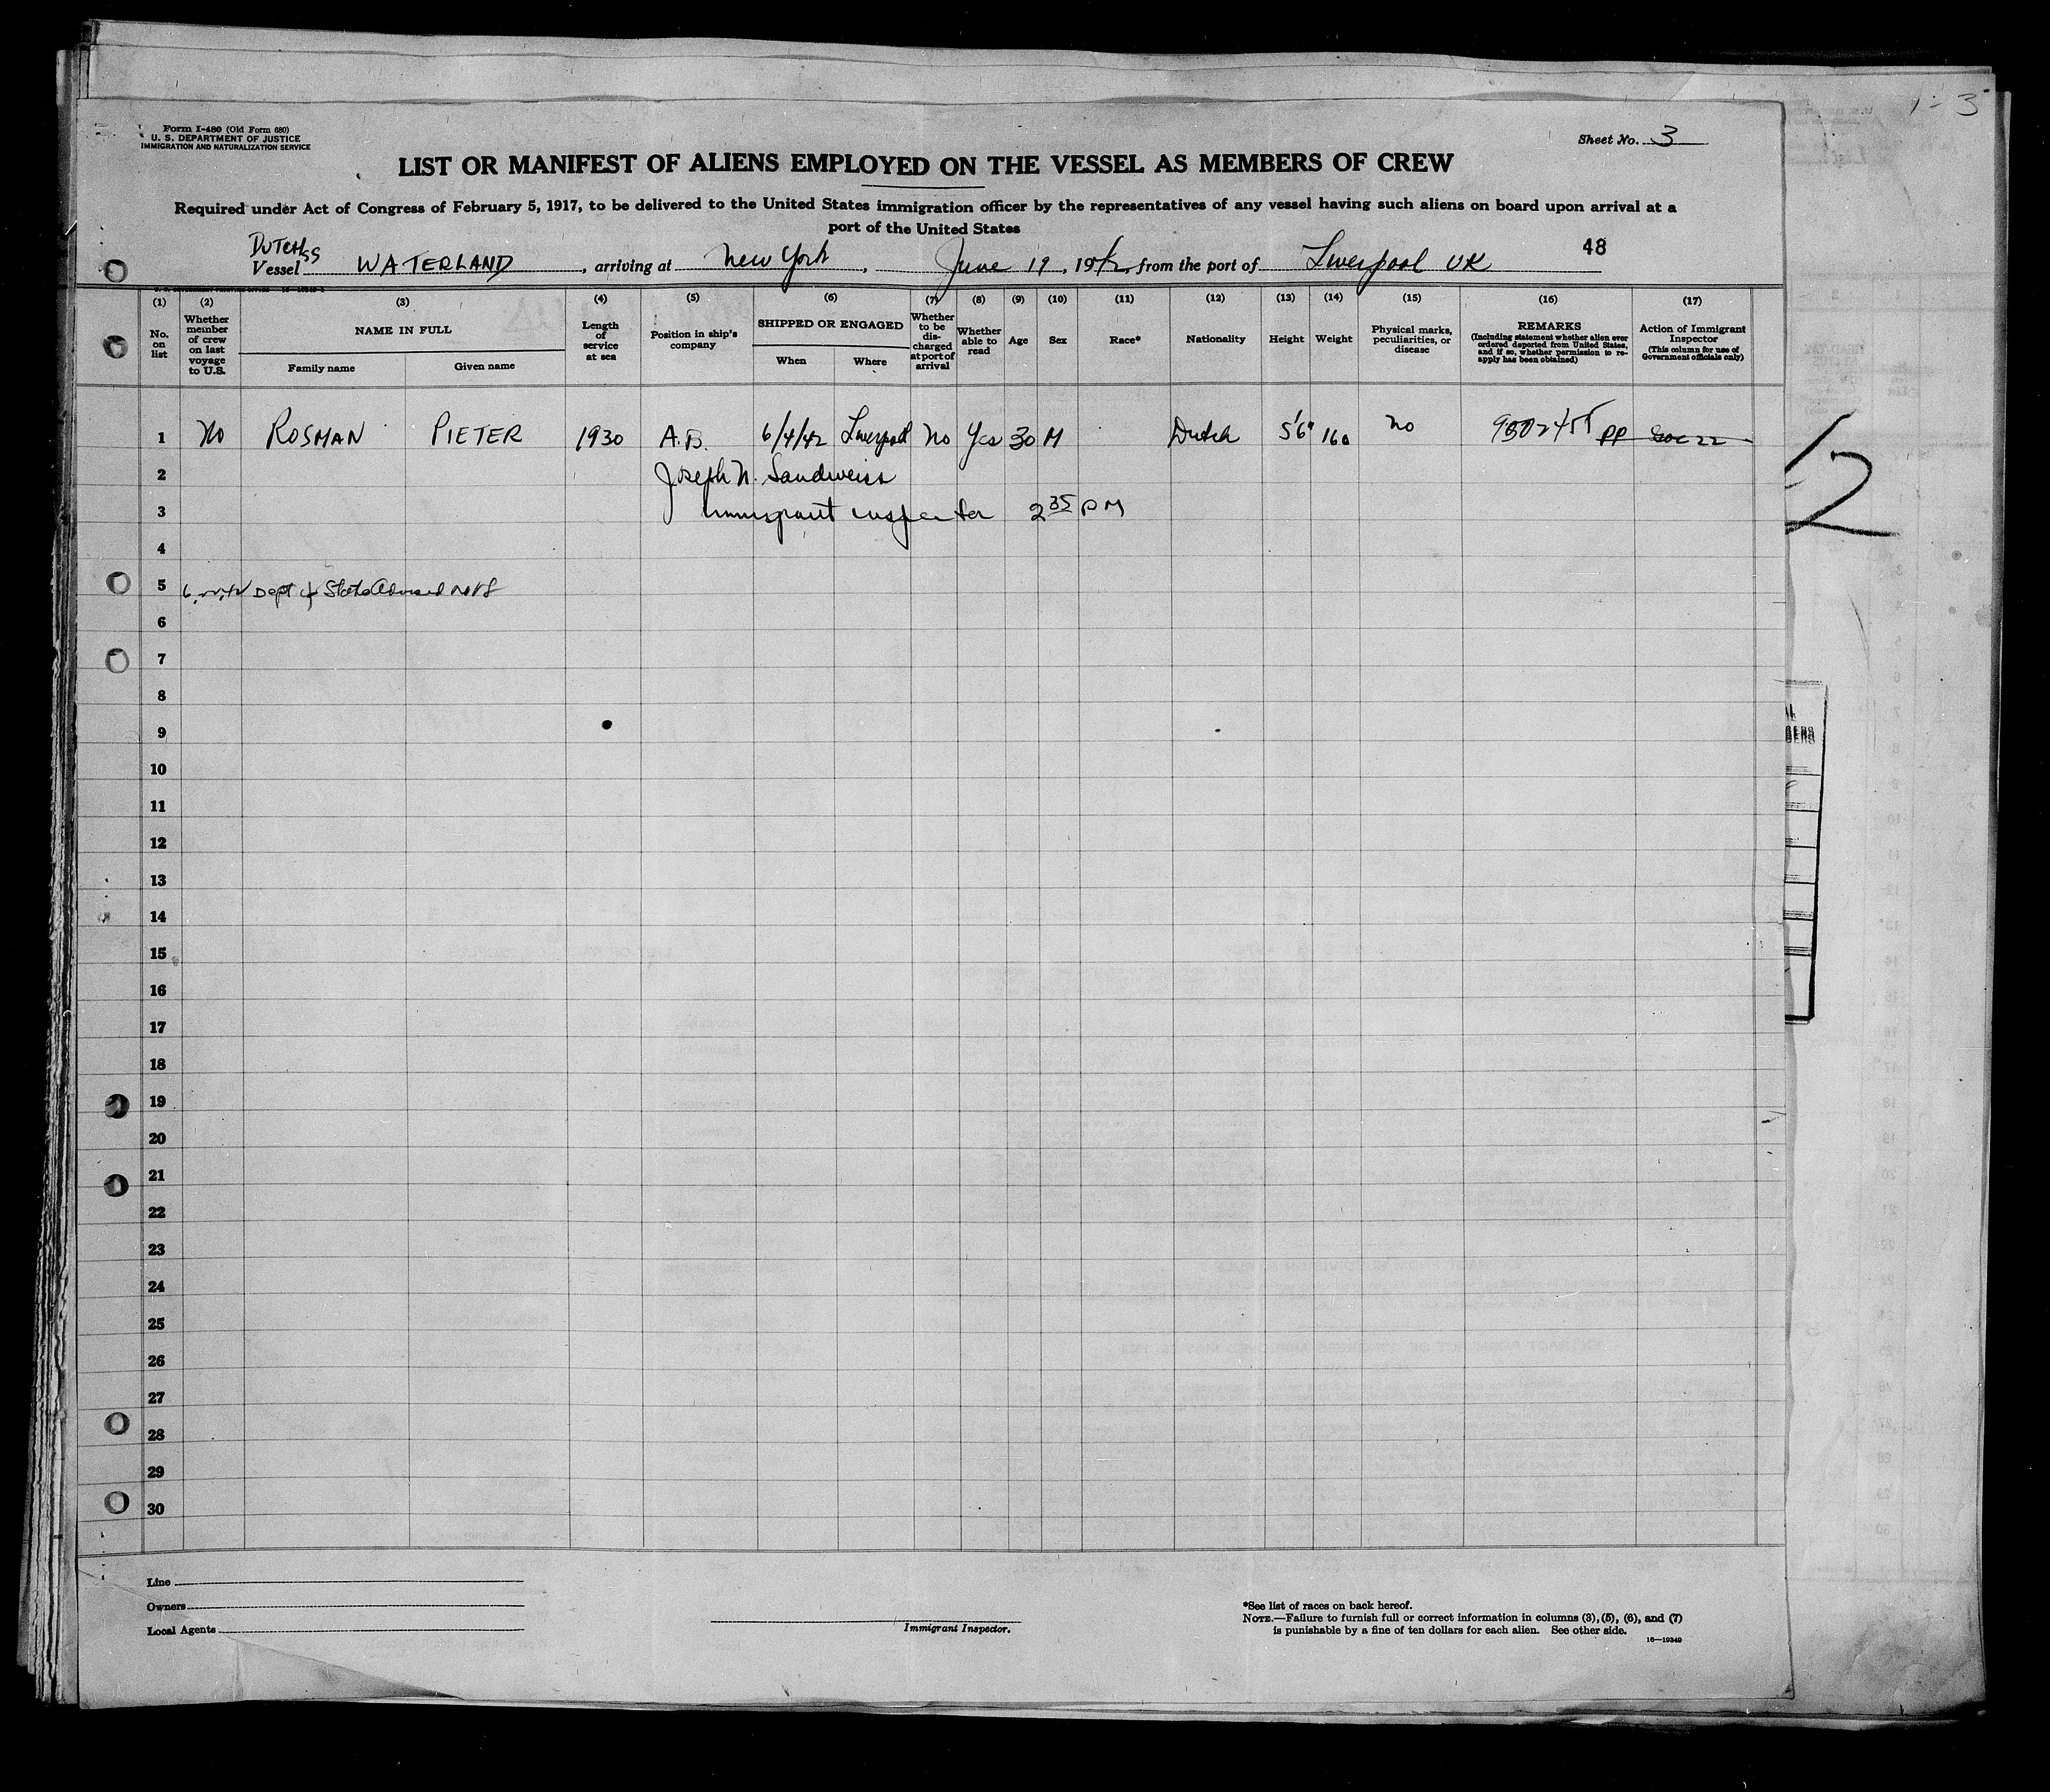 1-3
Form I-480 (Old Form 680)
U. S. DEPARTMENT OF JUSTICE
IMMIGRATION AND NATURALIZATION SERVICE
Sheet No. 3
LIST OR MANIFEST OF ALIENS EMPLOYED ON THE VESSEL AS MEMBERS OF CREW
Required under Act of Congress of February 5, 1917, to be delivered to the United States immigration officer by the representatives of any vessel having such aliens on board upon arrival at a
port of the United States
48
DUTCH SS
Vessel WATERLAND, arriving at New York, June 19, 1942, from the port of Liverpool UK
(1) (2) (3) (4) (5) (6) (7) (8) (9) (10) (11) (12) (13) (14) (15) (16) (17)
No. on list
Whether member of crew on last voyage to U.S.
NAME IN FULL
Family name
Given name
Length of service at sea
Position in ship's company
SHIPPED OR ENGAGED
When
Where
Whether to be discharged at port of arrival
Whether able to read
Age
Sex
Race*
Nationality
Height
Weight
Physical marks, peculiarities, or disease
REMARKS
(Including statement whether alien ever ordered deported from United States, and if so, whether permission to reapply has been obtained)
Action of Immigrant Inspector
(This column for use of Government officials only)
1 No ROSMAN PIETER 1930 A.B. 6/4/42 Liverpool No Yes 30 M Dutch 5'6" 160 no PP
2 Joseph N. Sandweiss
3 Immigrant Inspector 2 35 PM
4
5 Dept of State Advised
6
7
8
9
10
11
12
13
14
15
16
17
18
19
20
21
22
23
24
25
26
27
28
29
30
Line
Owners
Local Agents
Immigrant Inspector.
*See list of races on back hereof.
NOTE.—Failure to furnish full or correct information in columns (3), (5), (6), and (7)
is punishable by a fine of ten dollars for each alien. See other side.
16—19349